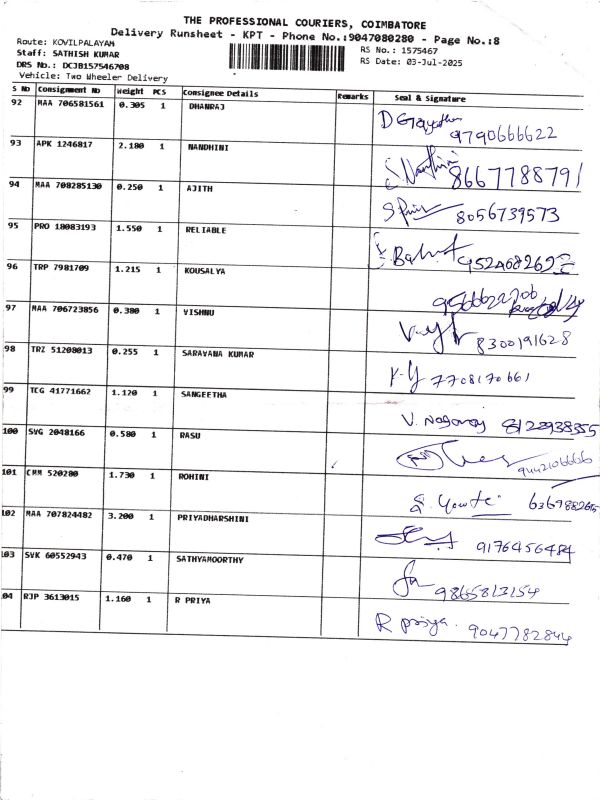 THE PROFESSIONAL COURIERS, COIMBATORE
Delivery Runsheet - KPT - Phone No.:9047080280 - Page No.:8
Route: KOVILPALAYAM
RS No.: 1575467
Staff: SATHISH KUMAR
RS Date: 03-Jul-2025
DRS No.: DCJB157546708
Vehicle: Two Wheeler Delivery
S No Consignment No Weight PCS Consignee Details Remarks Seal & Signature
92 MAA 706581561 0.305 1 DHANRAJ
9790666622
93 APK 1246817 2.180 1 NANDHINI
8667788791
94 MAA 708285130 0.250 1 AJITH
8056739573
95 PRO 18083193 1.550 1 RELIABLE
96 TRP 7981709 1.215 1 KOUSALYA
97 MAA 706723856 0.380 1 VISHNU
8300191628
98 TRZ 51208013 0.255 1 SARAVANA KUMAR
7708170661
99 TCG 41771662 1.120 1 SANGEETHA
8122938355
100 SVG 2048166 0.580 1 RASU
9442106666
101 CMM 520280 1.730 1 ROHINI
102 MAA 707824482 3.200 1 PRIYADHARSHINI
9176456484
103 SVK 60552943 0.470 1 SATHYAMOORTHY
9865813154
04 RJP 3613015 1.160 1 R PRIYA
R priya. 9047782844